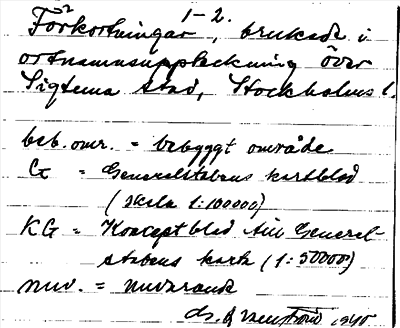 1-2.
Förkortningar, brukade i
ortnamnsuppteckning över
Sigtuna stad, Stockholms l.
beb. omr. = bebyggt område
G = Generalstabens kartblad
(skala 1:100000)
KG = Konceptblad till General-
stabens karta (1:50000)
nuv. = nuvarande
1940